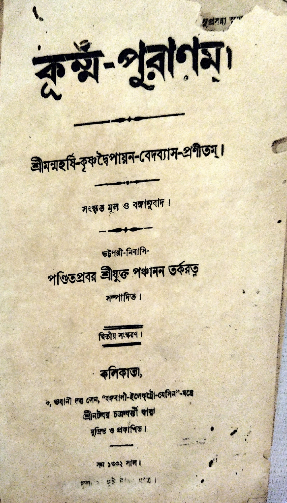 কূর্ম্ম-পুরাণম্।
শ্রীমন্মহর্ষি-কৃষ্ণদ্বৈপায়ন-বেদব্যাস-প্রণীতম্।
সংস্কৃত মূল ও বঙ্গানুবাদ।
ভট্টপল্লী-নিবাসি-
পণ্ডিতপ্রবর শ্রীযুক্ত পঞ্চানন তর্করত্ন
সম্পাদিত।
দ্বিতীয় সংস্করণ।
কলিকাতা,
ভবানী দত্ত লেন, "বঙ্গবাসী-ইলেক্ট্রো-মেসিন"-যন্ত্রে
শ্রীনটবর চক্রবর্ত্তী দ্বারা
মুদ্রিত ও প্রকাশিত।
সন ১৩৩২ সাল।